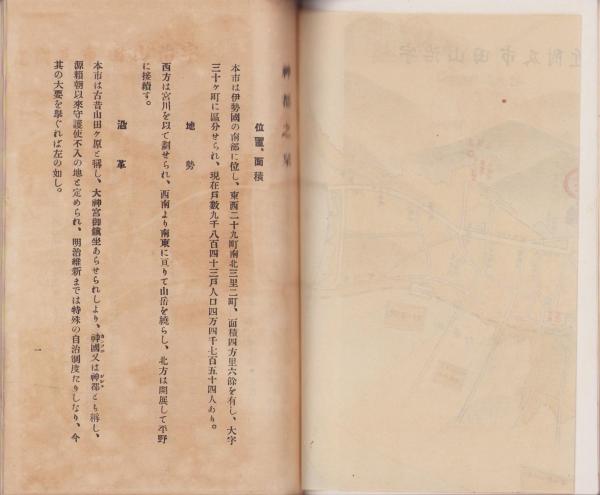 神都之栞
位置、面積
本市は伊勢國の南部に位し、東西二十九町南北三里二町、面積四方里六餘を有し、大字
三十ヶ町に區分せられ、現在戸數九千八百四十三戸人口四万四千七百五十四人あり。
地勢
西方は宮川を以て劃せられ、西南より南東に亘りて山岳を繞らし、北方は開展して平野
に接續す。
沿革
本市は古昔山田ヶ原と稱し、大神宮御鎭坐あらせられしより、神國又は神都とも稱し、
源賴朝以來守護使不入の地と定められ、明治維新までは特殊の自治制度たりしなり、今
其の大要を擧ぐれば左の如し。
一
宇治山田市及附近